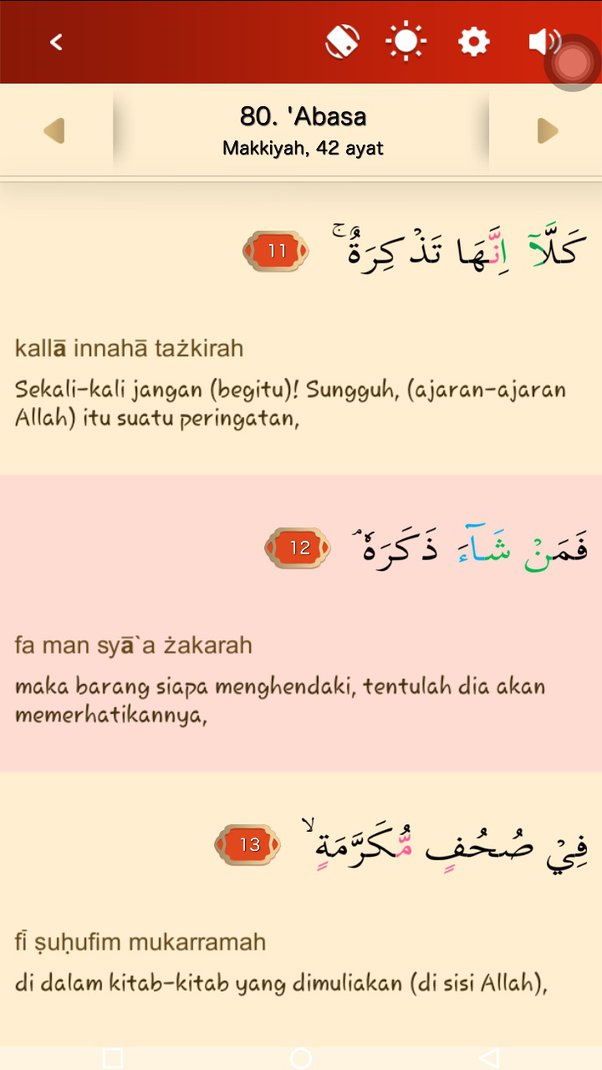 80. 'Abasa
Makkiyah, 42 ayat
كَلَّآ اِنَّهَا تَذْكِرَةٌ ۚ 11
kallā innahā tażkirah
Sekali-kali jangan (begitu)! Sungguh, (ajaran-ajaran
Allah) itu suatu peringatan,
فَمَنْ شَاۤءَ ذَكَرَهٗ ۘ 12
fa man syā`a żakarah
maka barang siapa menghendaki, tentulah dia akan
memerhatikannya,
فِيْ صُحُفٍ مُّكَرَّمَةٍ ۙ 13
fī ṣuḥufim mukarramah
di dalam kitab-kitab yang dimuliakan (di sisi Allah),